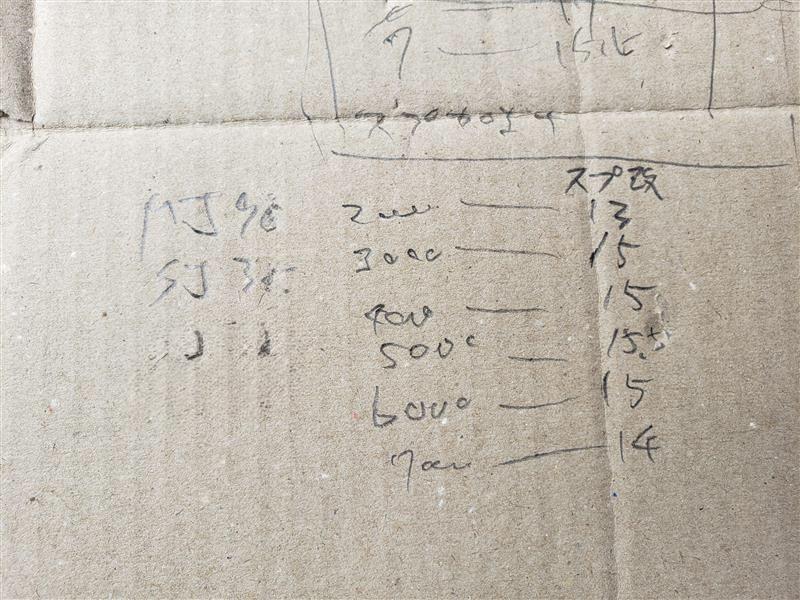 7 — 15.5
スプ改
MJ 90 2000 — 13
SJ 35 3000 — 15
4000 — 15
5000 — 15.5
6000 — 15
7000 — 14